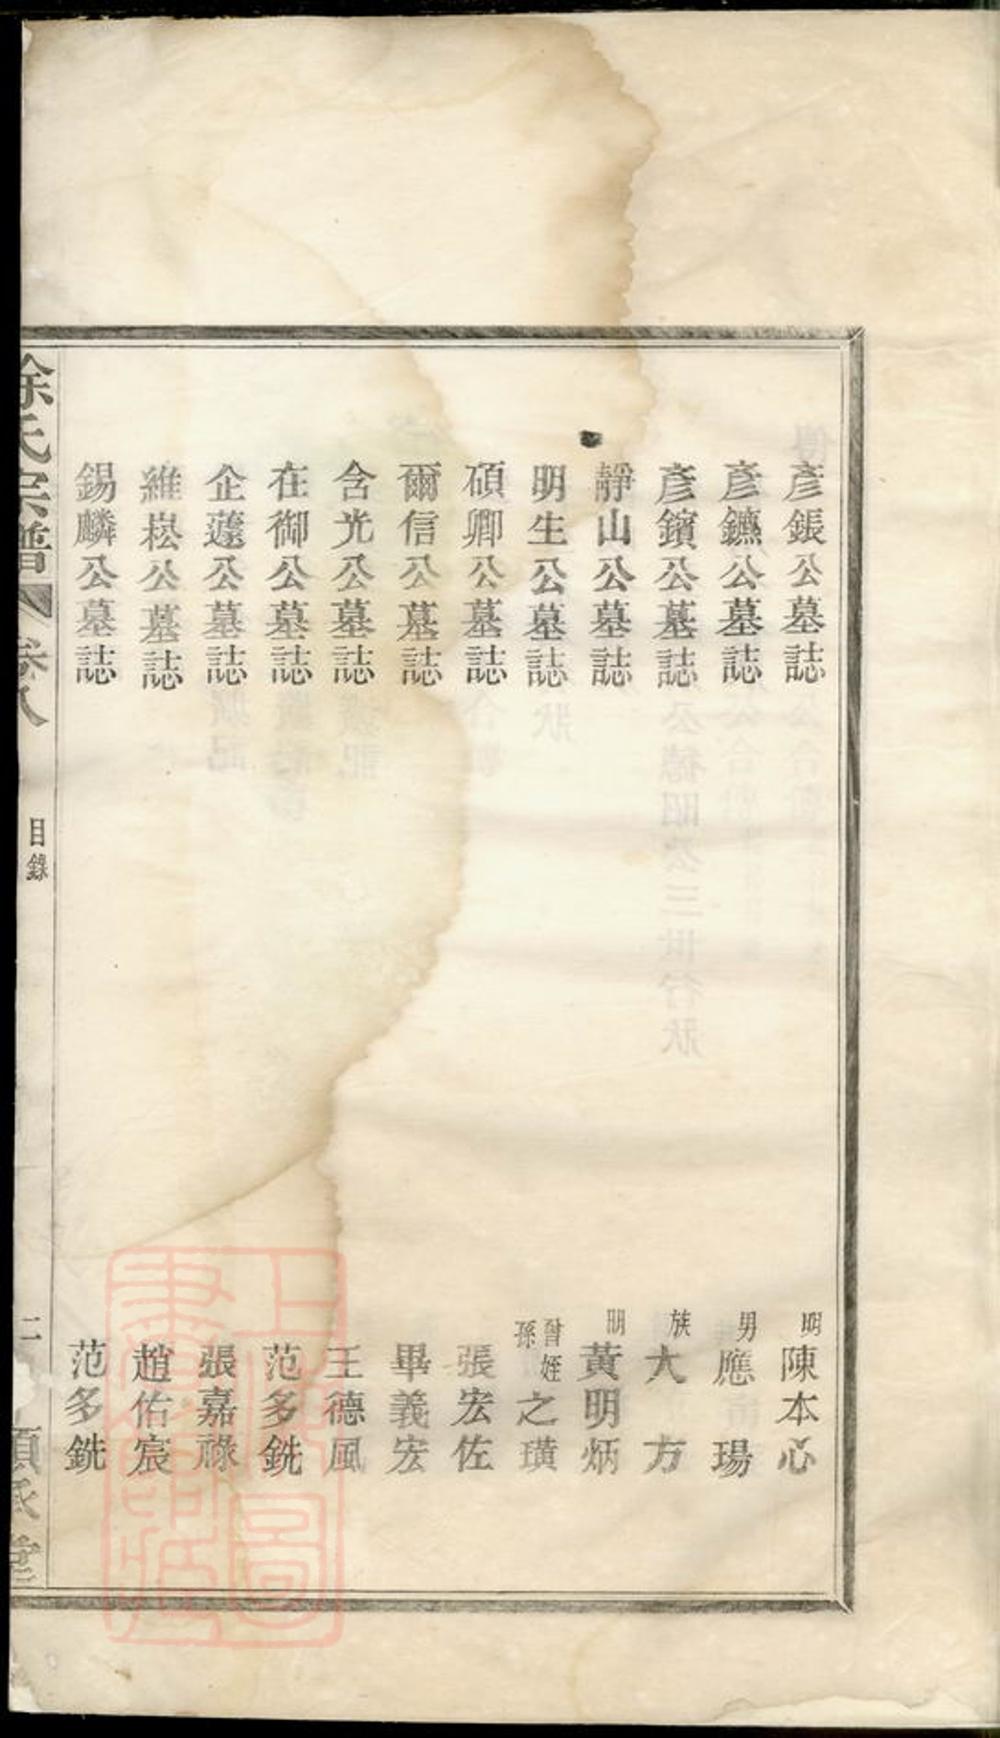 彥鋹公墓誌 明 陳本心
彥鑣公墓誌 男 應瑒
彥鑌公墓誌 族 大方
靜山公墓誌 明 黃明炳
明生公墓誌 曾姪孫 之璜
碩卿公墓誌 張宏佐
爾信公墓誌 畢義宏
含光公墓誌 王德風
在御公墓誌 范多銑
企蘧公墓誌 張嘉祿
維崧公墓誌 趙佑宸
錫麟公墓誌 范多銑
徐氏宗譜 卷八 目錄 二